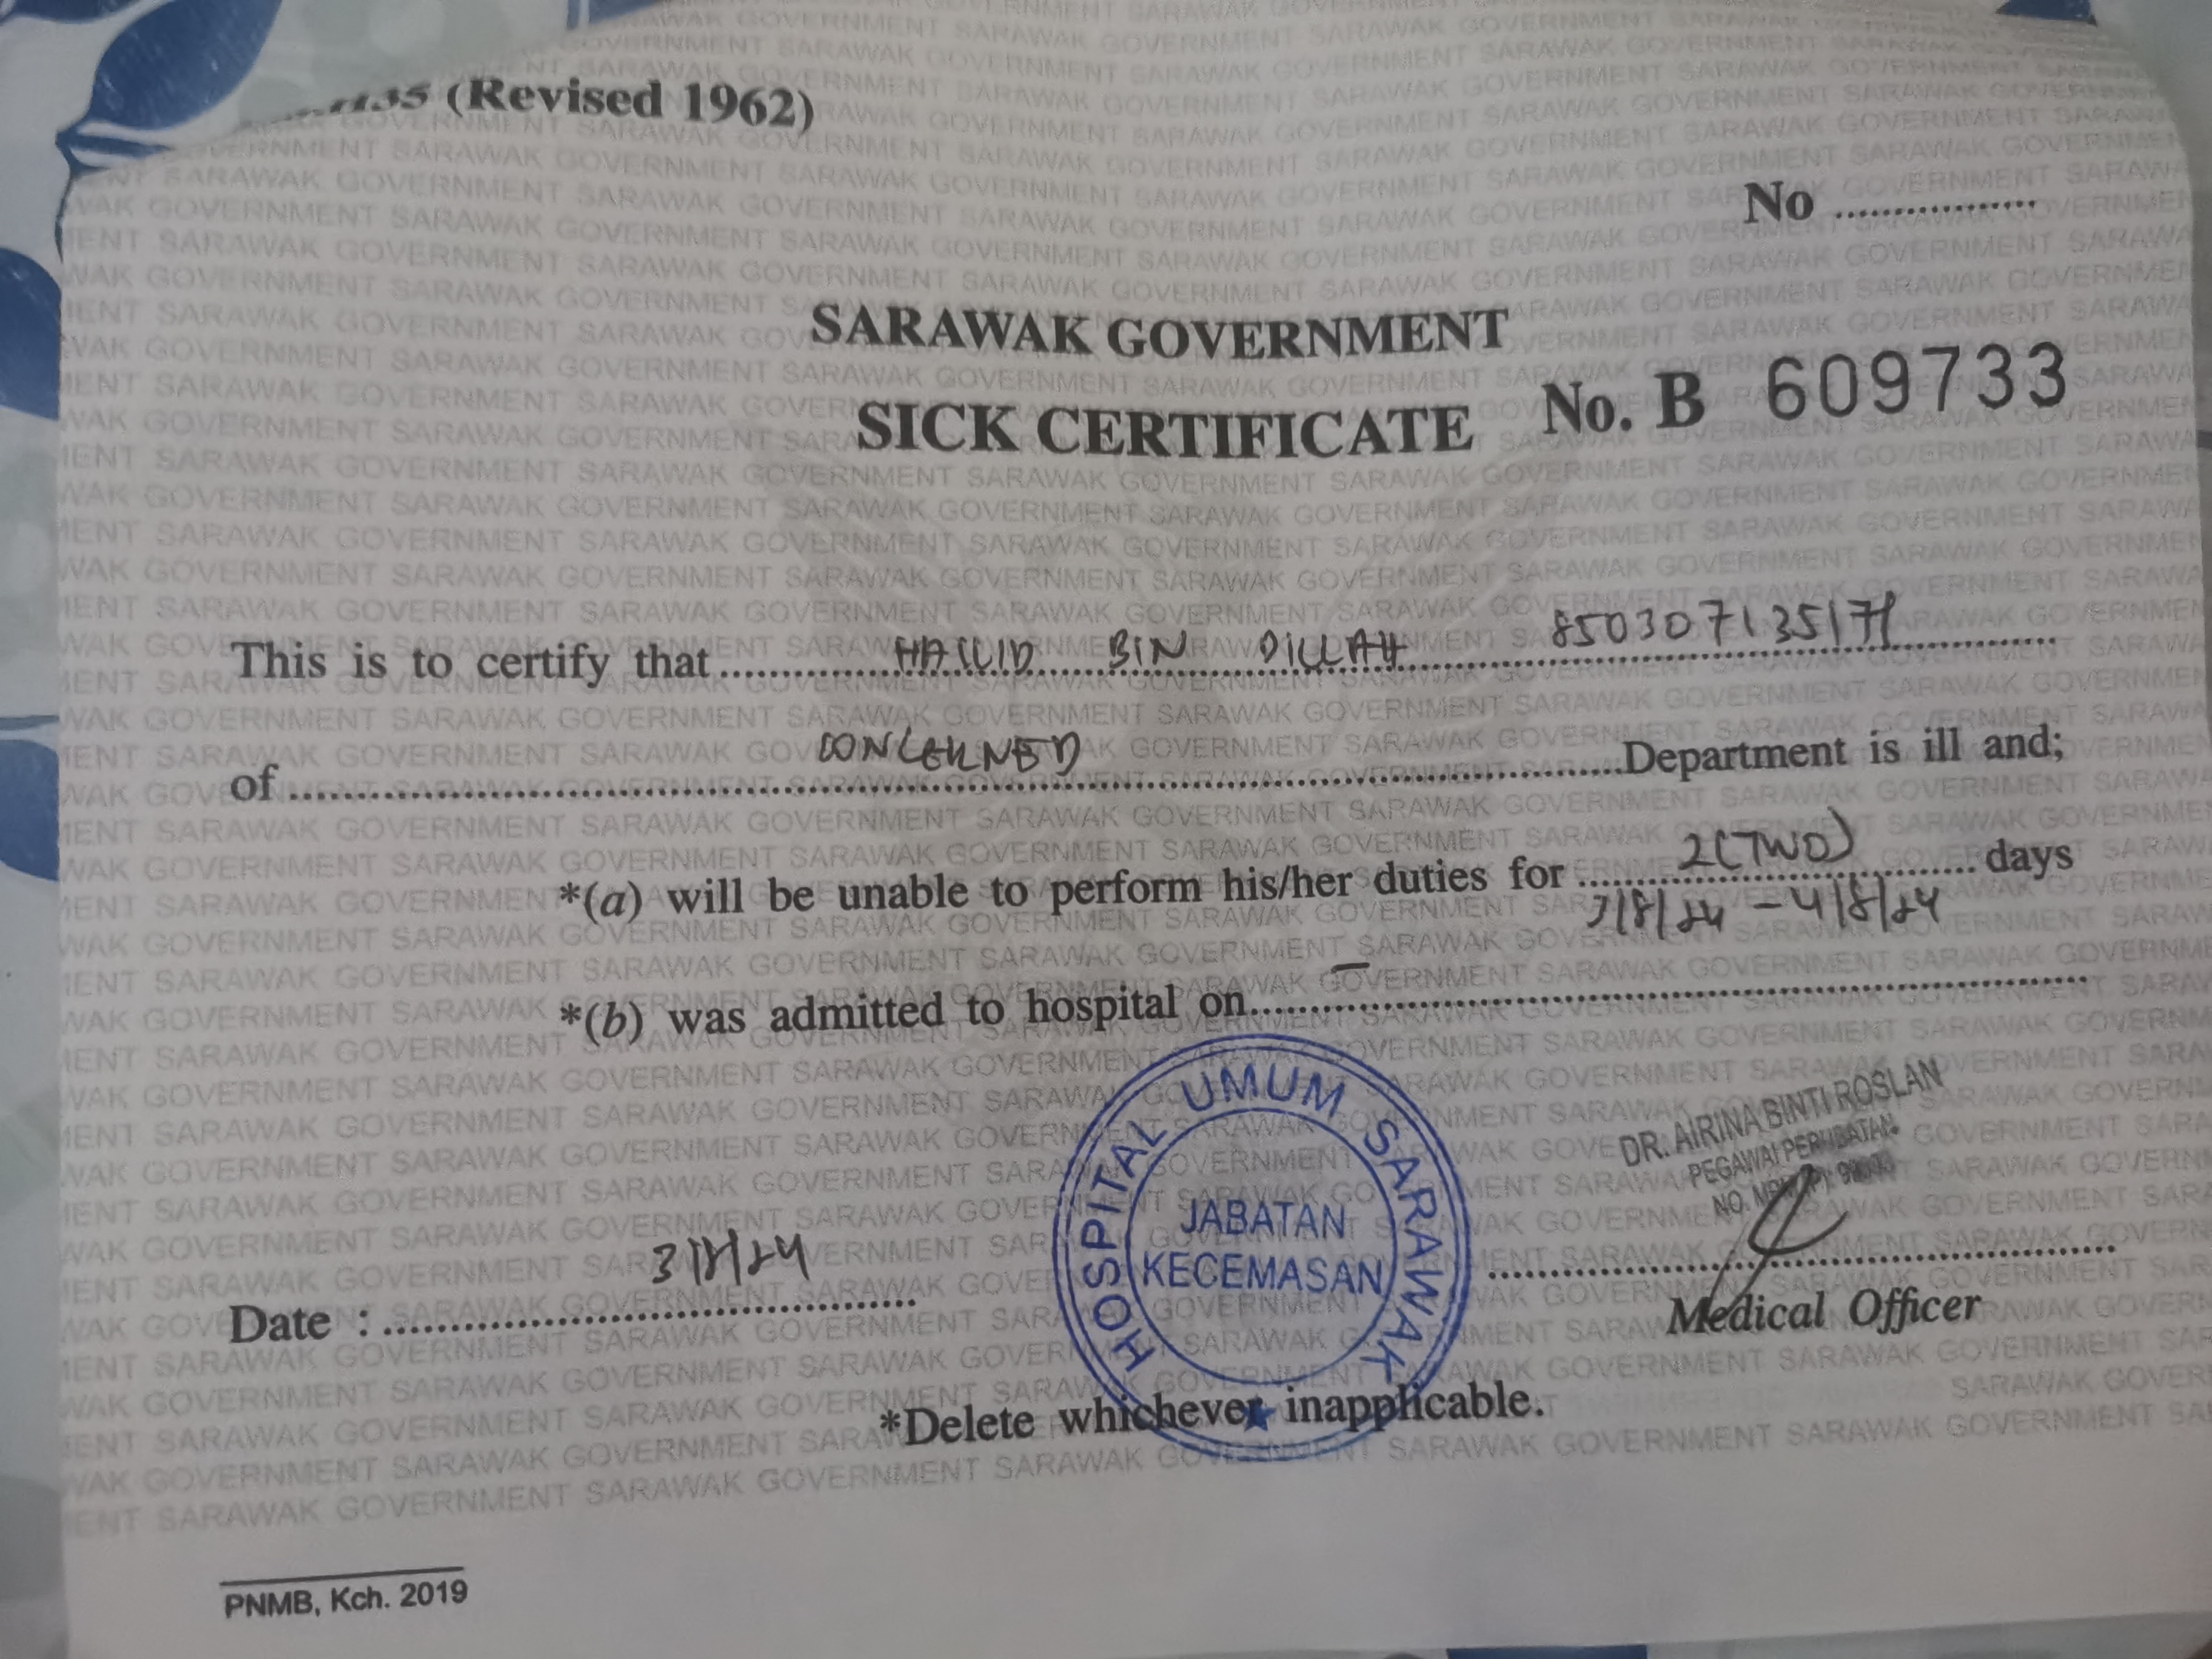 (Revised 1962)
No ..................
SARAWAK GOVERNMENT
SICK CERTIFICATE No. B 609733
This is to certify that BIN DILLAH
of CONCERNED Department is ill and;
*(a) will be unable to perform his/her duties for 2 (TWO) days
3/8/24 - 4/8/24
*(b) was admitted to hospital on –
HOSPITAL UMUM SARAWAK
JABATAN
KECEMASAN
DR. AIRINA BINTI ROSLAN
PEGAWAI PERUBATAN
NO.
Date : 3/8/24
Medical Officer
*Delete whichever inapplicable.
PNMB, Kch. 2019